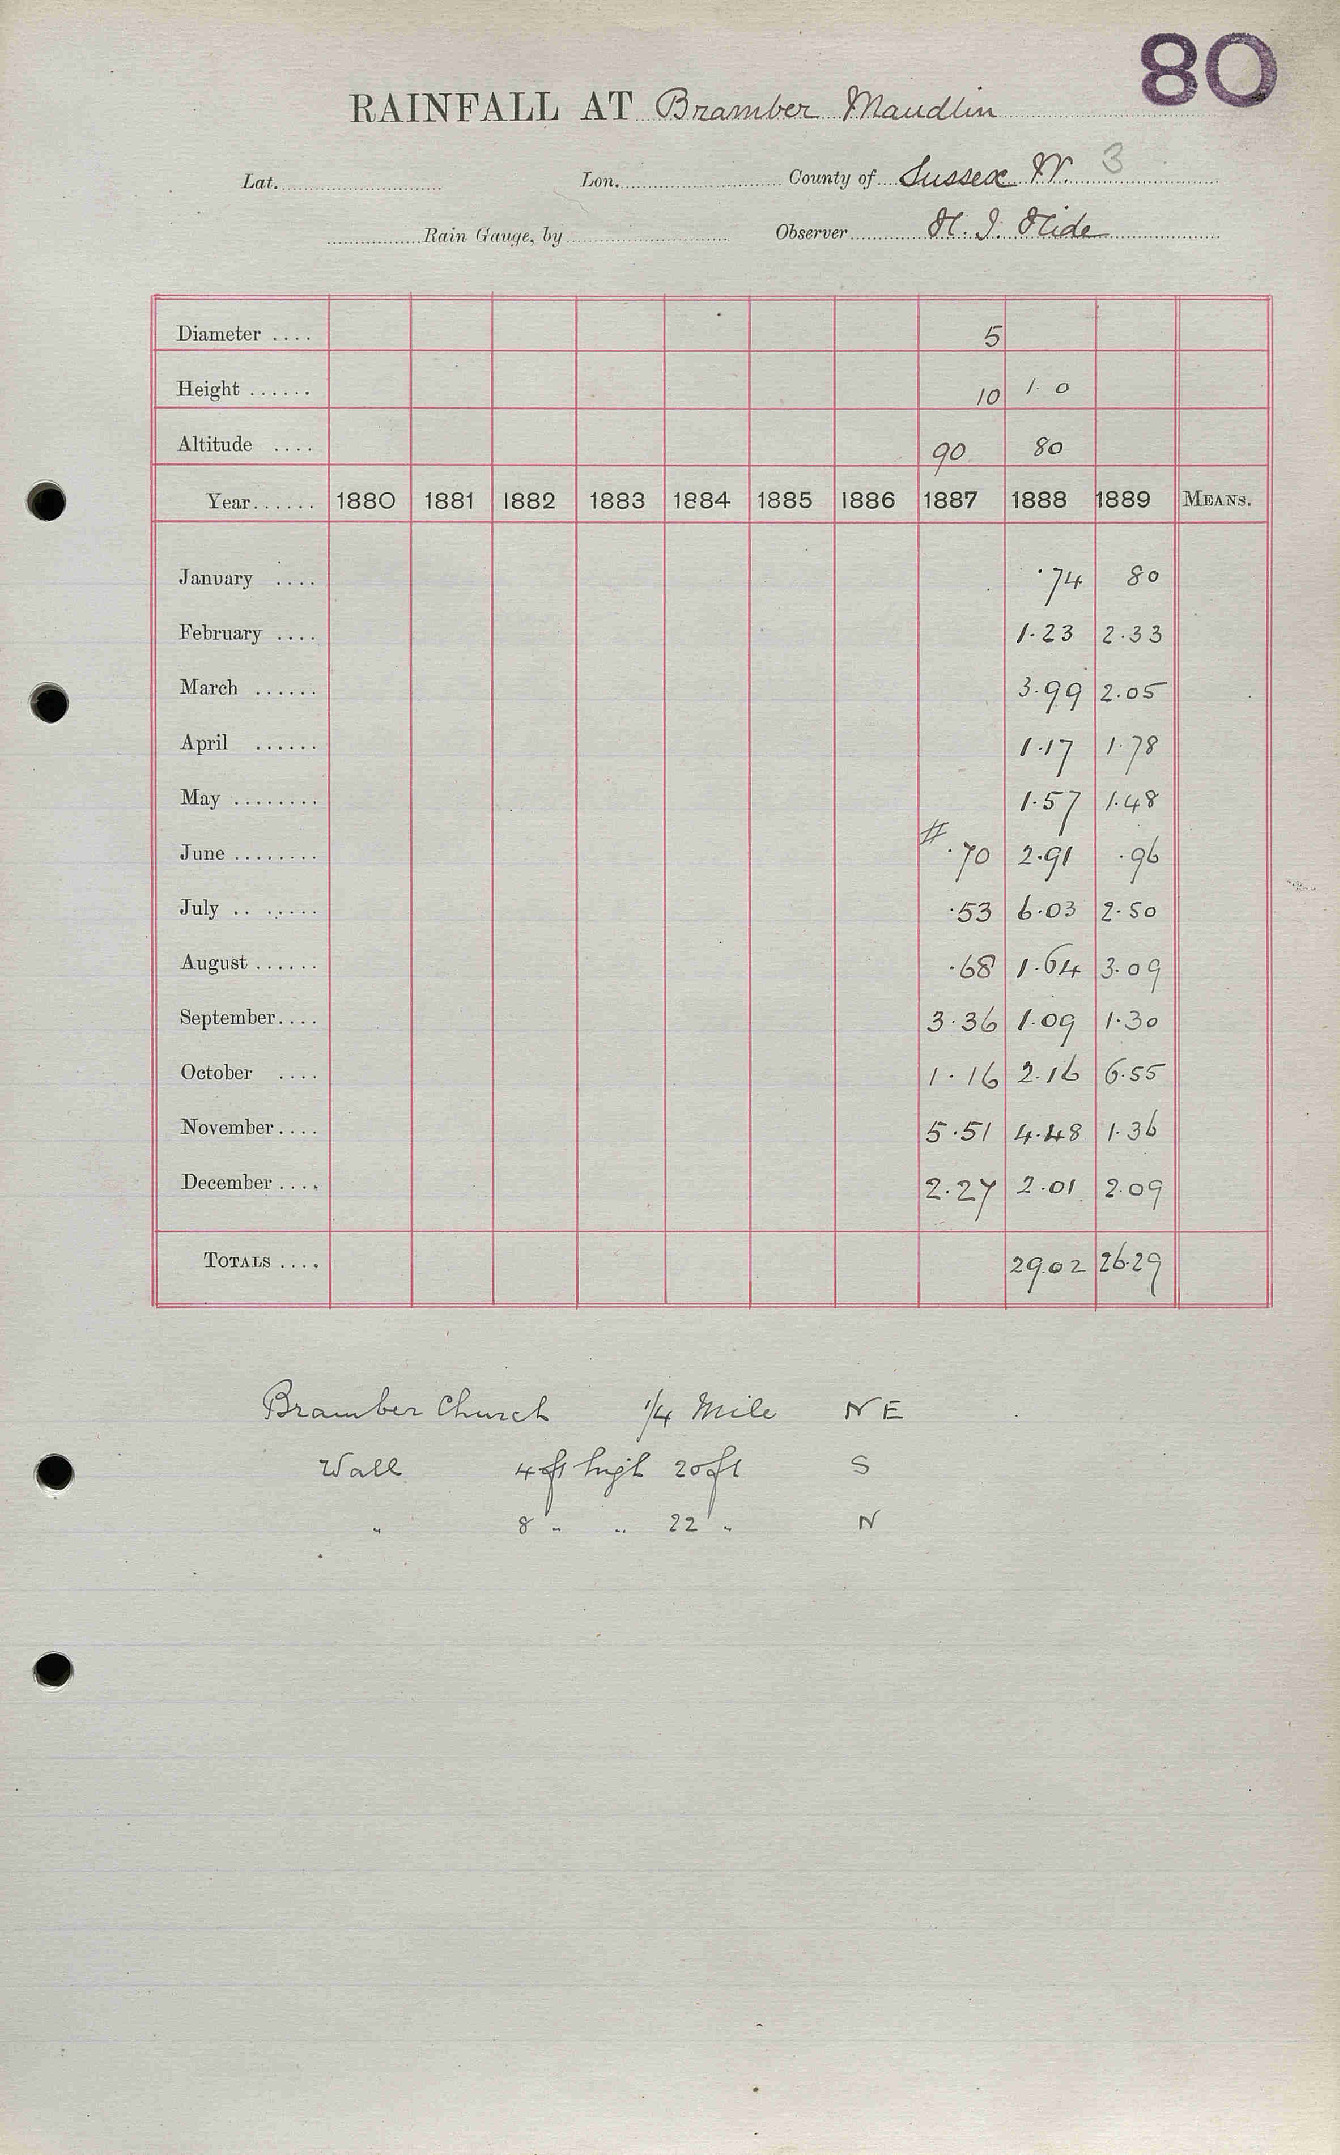 80
RAINFALL AT Bramber Maudlin
Lat. Lon. County of Sussex W. 3
Rain Gauge, by Observer H. J. Hide
Diameter .... 5
Height ...... 10 1 0
Altitude .... 90 80
Year...... 1880 1881 1882 1883 1884 1885 1886 1887 1888 1889 MEANS.
January .... ·74 80
February .... 1·23 2·33
March ...... 3·99 2·05
April ...... 1·17 1·78
May ........ 1·57 1·48
June ........ # ·70 2·91 ·96
July ........ ·53 6·03 2·50
August ...... ·68 1·64 3·09
September.... 3·36 1·09 1·30
October .... 1·16 2·16 6·55
November.... 5·51 4·48 1·36
December .... 2·27 2·01 2·09
TOTALS .... 29.02 26.29
Bramber Church 1/4 Mile NE
Wall 4ft high 20ft S
" 8 " " 22 " N